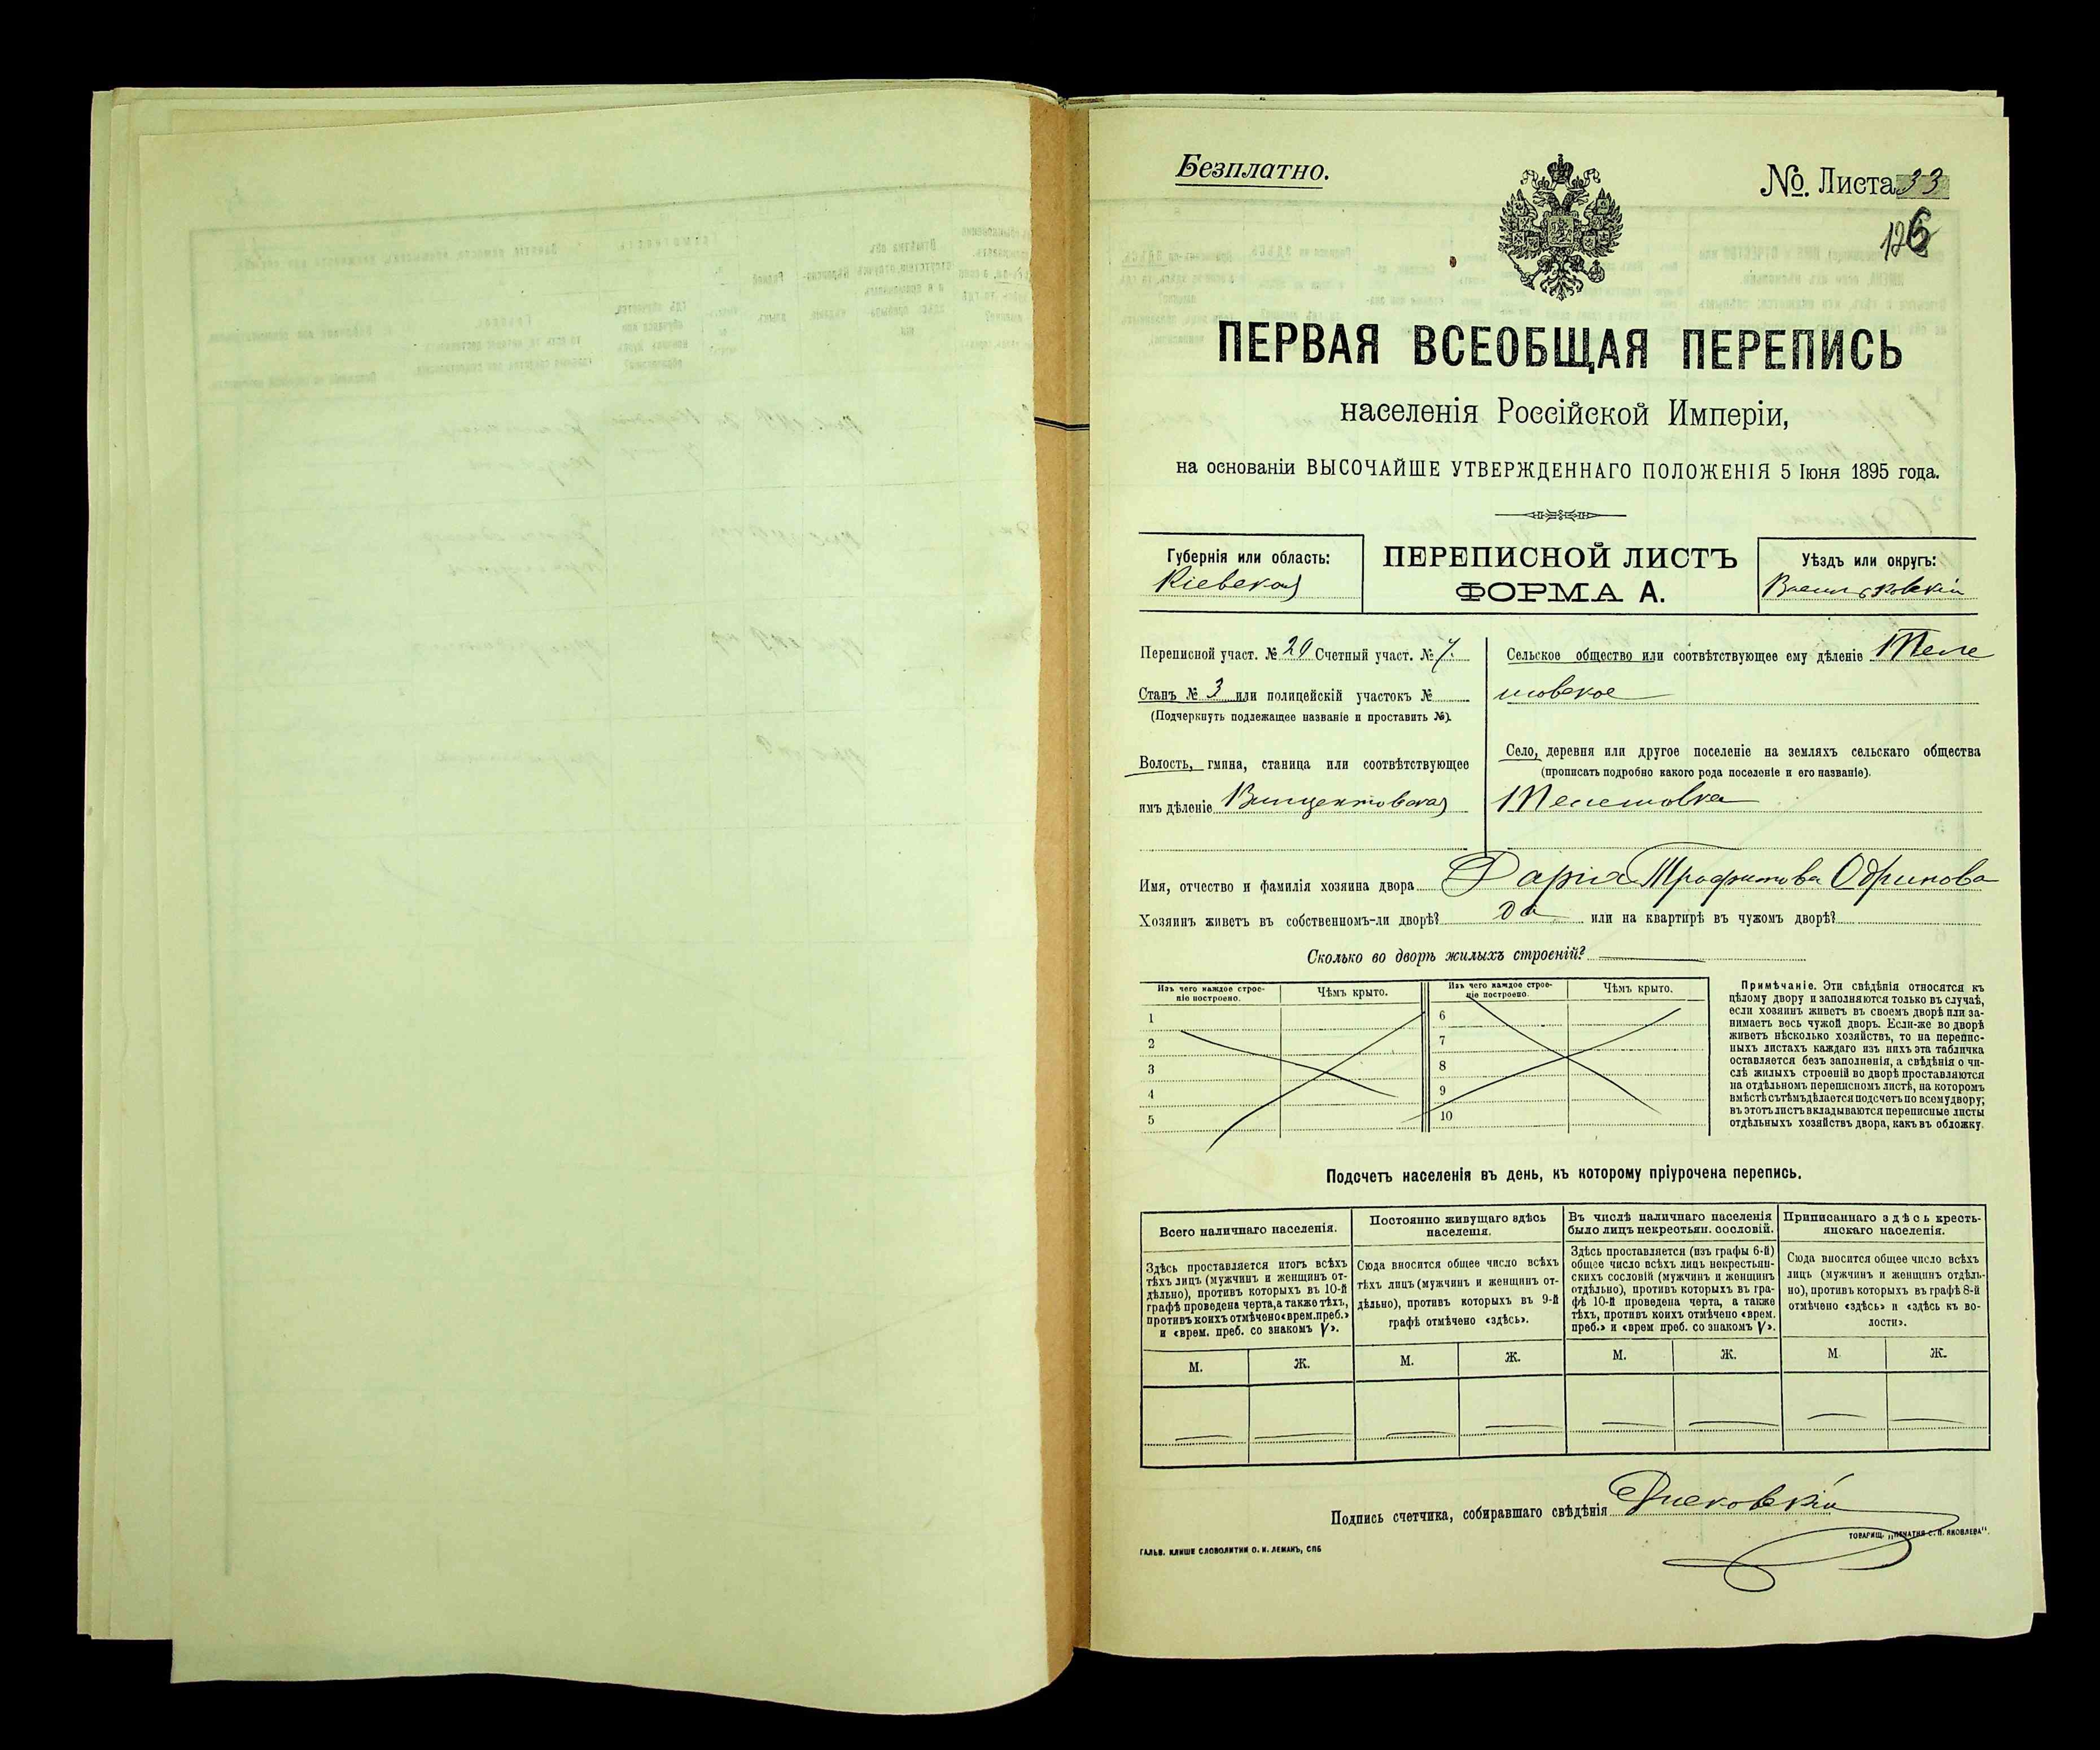 Безплатно.
№. Листа 33
126
ПЕРВАЯ ВСЕОБЩАЯ ПЕРЕПИСЬ
населенія Россійской Имперіи,
на основаніи ВЫСОЧАЙШЕ УТВЕРЖДЕННАГО ПОЛОЖЕНІЯ 5 Іюня 1895 года.
Губернія или область:
Кіевская
ПЕРЕПИСНОЙ ЛИСТЪ
ФОРМА А.
Уѣздъ или округъ:
Васильковскій
Переписной участ. № 20 Счетный участ. № 7.
Станъ № 3 или полицейскій участокъ №
(Подчеркнуть подлежащее названіе и проставить №).
Волость, гмина, станица или соотвѣтствующее
имъ дѣленіе Винцентовская
Сельское общество или соотвѣтствующее ему дѣленіе Теле
шовское
Село, деревня или другое поселеніе на земляхъ сельскаго общества
(прописать подробно какого рода поселеніе и его названіе).
Телешовка
Имя, отчество и фамилія хозяина двора Дарія Трофимова Одринова
Хозяинъ живетъ въ собственномъ-ли дворѣ? да или на квартирѣ въ чужомъ дворѣ?
Сколько во дворѣ жилыхъ строеній?
Изъ чего каждое строе-
ніе построено.
Чѣмъ крыто.
Изъ чего каждое строе-
ніе построено.
Чѣмъ крыто.
1
2
3
4
5
6
7
8
9
10
Примѣчаніе. Эти свѣдѣнія относятся къ
цѣлому двору и заполняются только въ случаѣ,
если хозяинъ живетъ въ своемъ дворѣ или за-
нимаетъ весь чужой дворъ. Если-же во дворѣ
живетъ нѣсколько хозяйствъ, то на перепис-
ныхъ листахъ каждаго изъ нихъ эта табличка
оставляется безъ заполненія, а свѣдѣнія о чи-
слѣ жилыхъ строеній во дворѣ проставляются
на отдѣльномъ переписномъ листѣ, на которомъ
вмѣстѣ съ тѣмъ дѣлается подсчетъ по всему двору;
въ этотъ листъ вкладываются переписные листы
отдѣльныхъ хозяйствъ двора, какъ въ обложку.
Подсчетъ населенія въ день, къ которому пріурочена перепись.
Всего наличнаго населенія.
Здѣсь проставляется итогъ всѣхъ
тѣхъ лицъ (мужчинъ и женщинъ от-
дѣльно), противъ которыхъ въ 10-й
графѣ проведена черта, а также тѣхъ,
противъ коихъ отмѣчено «врем. преб.»
и «врем. преб. со знакомъ V».
М.
Ж.
Постоянно живущаго здѣсь
населенія.
Сюда вносится общее число всѣхъ
тѣхъ лицъ (мужчинъ и женщинъ от-
дѣльно), противъ которыхъ въ 9-й
графѣ отмѣчено «здѣсь».
М.
Ж.
Въ числѣ наличнаго населенія
было лицъ некрестьян. сословій.
Здѣсь проставляется (изъ графы 6-й)
общее число всѣхъ лицъ некрестьян-
скихъ сословій (мужчинъ и женщинъ
отдѣльно), противъ которыхъ въ гра-
фѣ 10-й проведена черта, а также
тѣхъ, противъ коихъ отмѣчено «врем.
преб.» и «врем преб. со знакомъ V».
М.
Ж.
Приписаннаго здѣсь кресть-
янскаго населенія.
Сюда вносится общее число всѣхъ
лицъ (мужчинъ и женщинъ отдѣль-
но), противъ которыхъ въ графѣ 8-й
отмѣчено «здѣсь» и «здѣсь къ во-
лости».
М.
Ж.
Подпись счетчика, собиравшаго свѣдѣнія
ГАЛЬВ. КЛИШЕ СЛОВОЛИТНИ О. И. ЛЕМАНЪ, СПБ
ТОВАРИЩ. „ПЕЧАТНЯ С. П. ЯКОВЛЕВА".